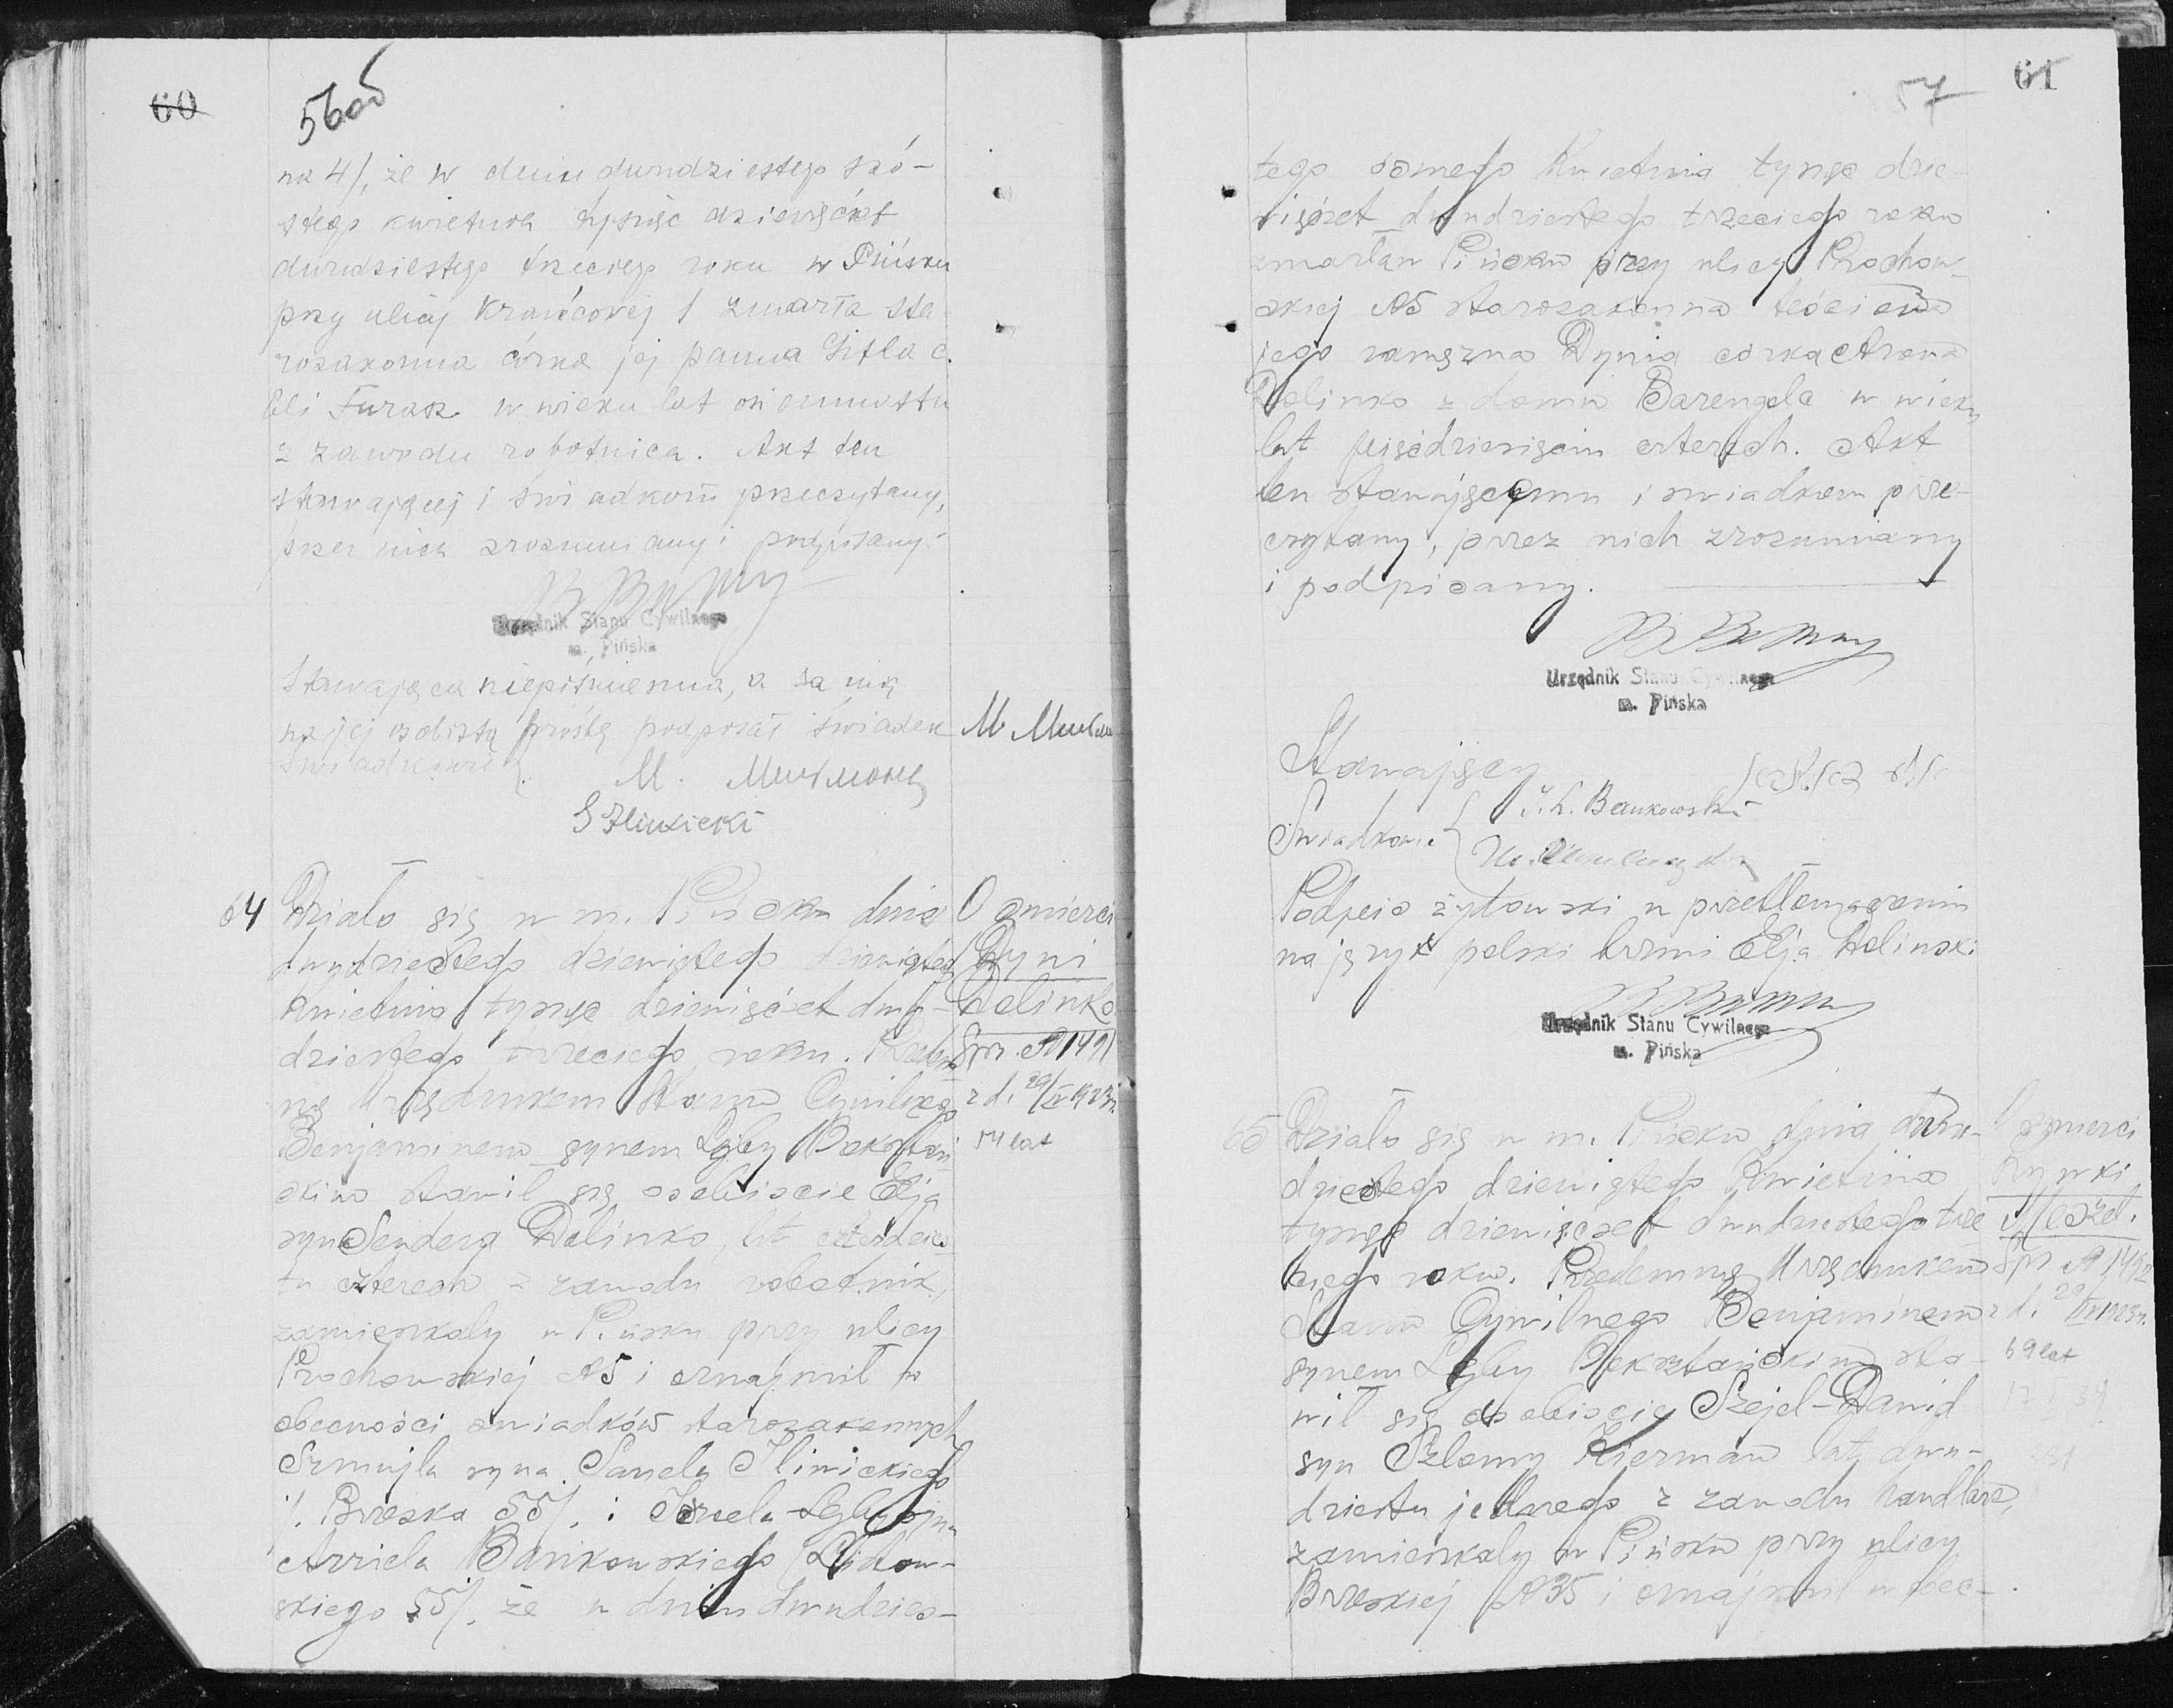 60
56об
na 4/, że w dniu dwudziestego szó-
stego kwietnia tysiąc dziewięćset
dwudziestego trzeciego roku w Pińsku
przy ulicy Krańcowej 1 zmarła sta-
rozakonna córka jej panna Gitla c.
Eli Furasz w wieku lat osiemnastu
z zawodu robotnica. Akt ten
stawającej i świadkom przeczytany,
przez nich zrozumiany i podpisany.
Urzędnik Stanu Cywilnego
m. Pińska
Stawająca niepiśmienna, a za nią
na jej osobistą prośbę podpisał świadek
Świadkowie M.
S Iliwicki
64 Działo się w m. Pińsku dnia
dwudziestego dziewiątego
kwietnia tysiąc dziewięćset dwu-
dziestego trzeciego roku. Przedem-
ną Urzędnikem Stanu Cywilnego
Benjaminem synem LejbyBoksztań-
skim stawił się osobiście Elja
syn Sendera Dolinko, lat czterdzies-
tu czterech z zawodu robotnik,
zamieszkały w Pińsku przy ulicy
Prochowskiej №5 i oznajmił w
obecności świadków starozakonnych
Szmujla syna Sanela Iliwickiego
/. Brzeska 55/. i Izraela-Lejby syna
Arriela Bańkowskiego /Albrow-
skiego 55/. że w dniu dwudzies-
O śmierci
Dyni
Dolinko
Spr. №1491
z d. 29/IV 1923r.
54 lat
57
61
tego ósmego Kwietnia tysiąc dzie-
więćset dwudziestego trzeciego roku
zmarła w Pińsku przy ulicy Prochow-
skiej №5 starozakonna teściowa
jego zamężna Dynia córka Arona
Dolinko z domu Barengolc w wieku
lat pięćdziesięciu czterech. Akt
ten stawającemu i świadkom prze-
czytany, przez nich zrozumiany
i podpisany.
Urzędnik Stanu Cywilnego
m. Pińska
Stawający
Świadkowie I. L. Bankowski
Podpis żydowski w przetłomaczeniu
na język polski brzmi Elja Dolinski
Urzędnik Stanu Cywilnego
m. Pińska
65 Działo się w m. Pińsku dnia dwu-
dziestego dziewiątego Kwietnia
tysiąc dziewięćset dwudziestego trze
ciego roku. Przedemną Urzędnikem
Stanu Cywilnego Benjaminem
synem Lejby Boksztańskim sta-
wił się osobiście Szejel-Dawid
syn Szlomy Zierman lat dwu-
dziestu jednego z zawodu handlarz,
zamieszkały w Pińsku przy ulicy
Brzeskiej №35 i oznajmił w obec-
O śmierci
Rywki
Spr №1492
z d. 29/IV 1923r.
69 lat